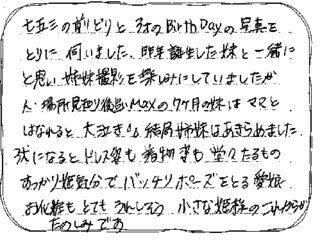 七五三の前どりと 3才のBirth Dayの写真を
とりに 伺いました。昨年誕生した妹と一緒に
と思い 姉妹撮影を楽しみにしていましたが
人・場所見知り後追いMaxの7ヶ月の妹は ママと
はなれると 大泣き 結局姉妹はあきらめました。
3才になると ドレス姿も 着物姿も 堂々たるもの
すっかり姫気分で バッチリポーズをとる 愛娘
お化粧も とても うれしそう 小さな姫様の これからが
たのしみです